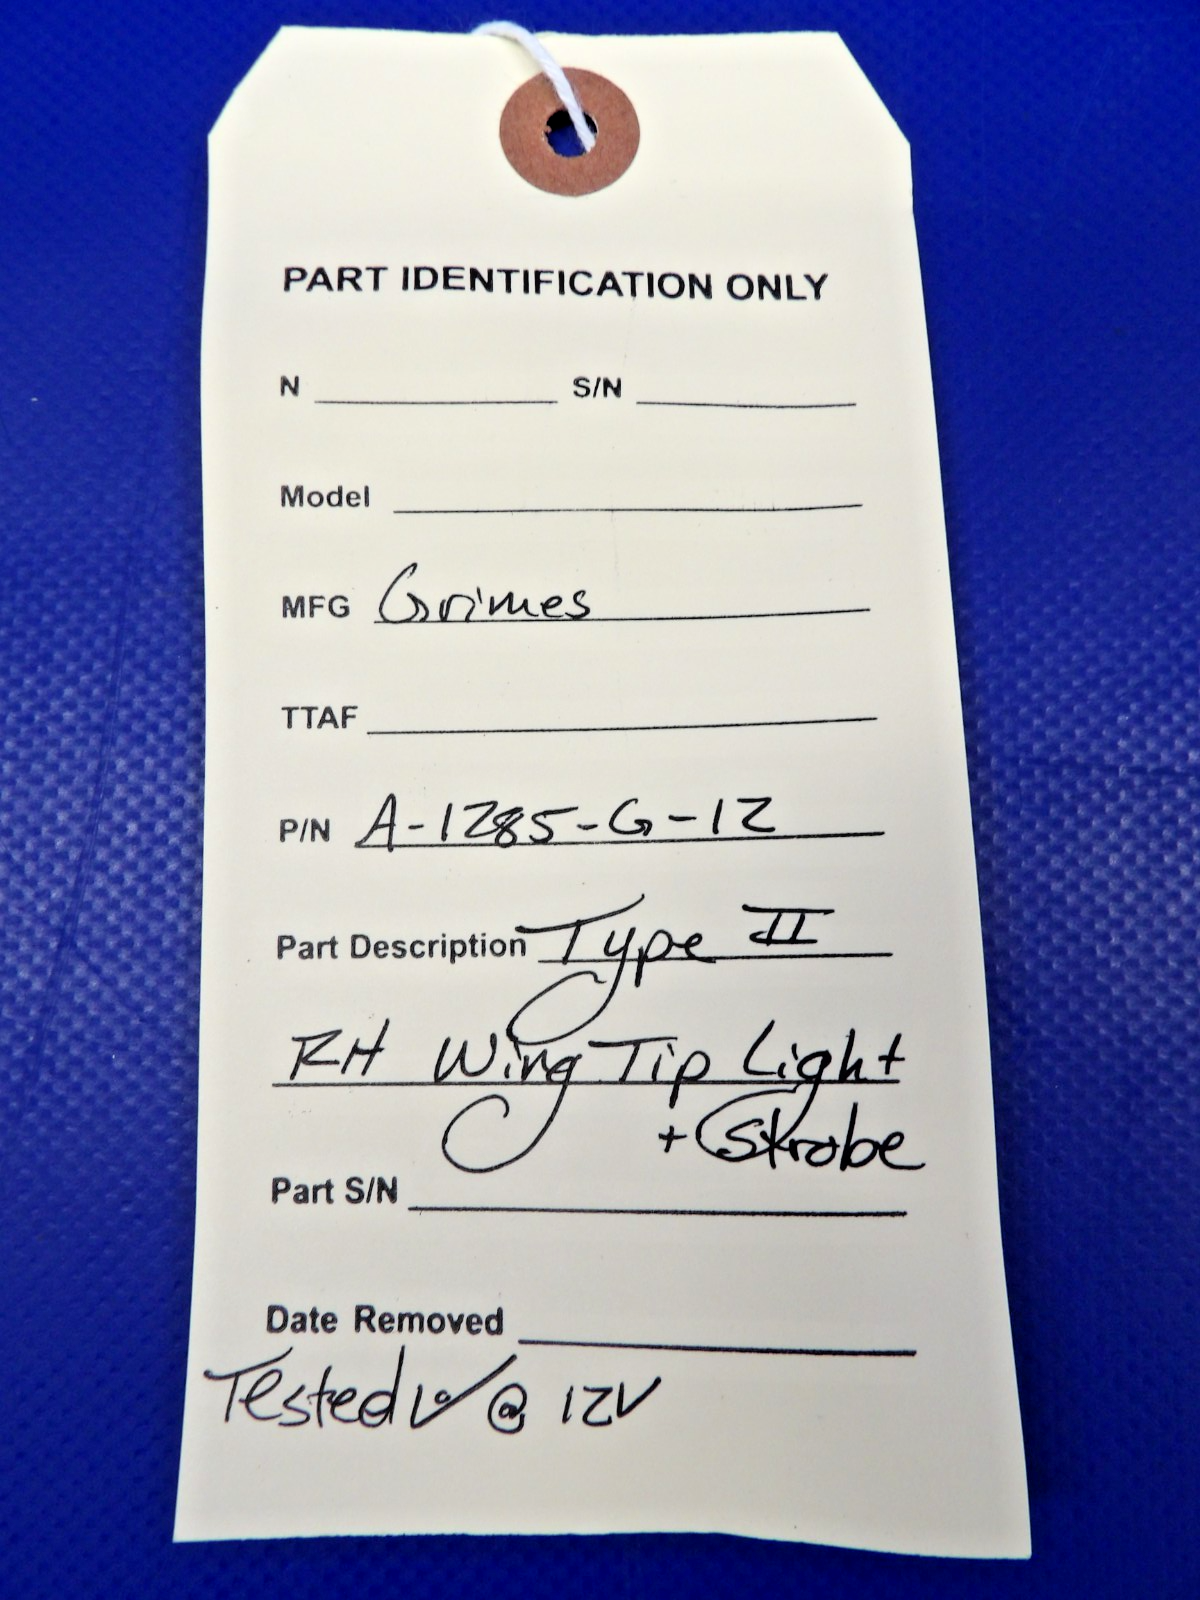 PART IDENTIFICATION ONLY
N S/N
Model
MFG Grimes
TTAF
P/N A-1285-G-12
Part Description Type II
RH Wing Tip Light
+ Strobe
Part S/N
Date Removed
Tested ✓ @ 12V